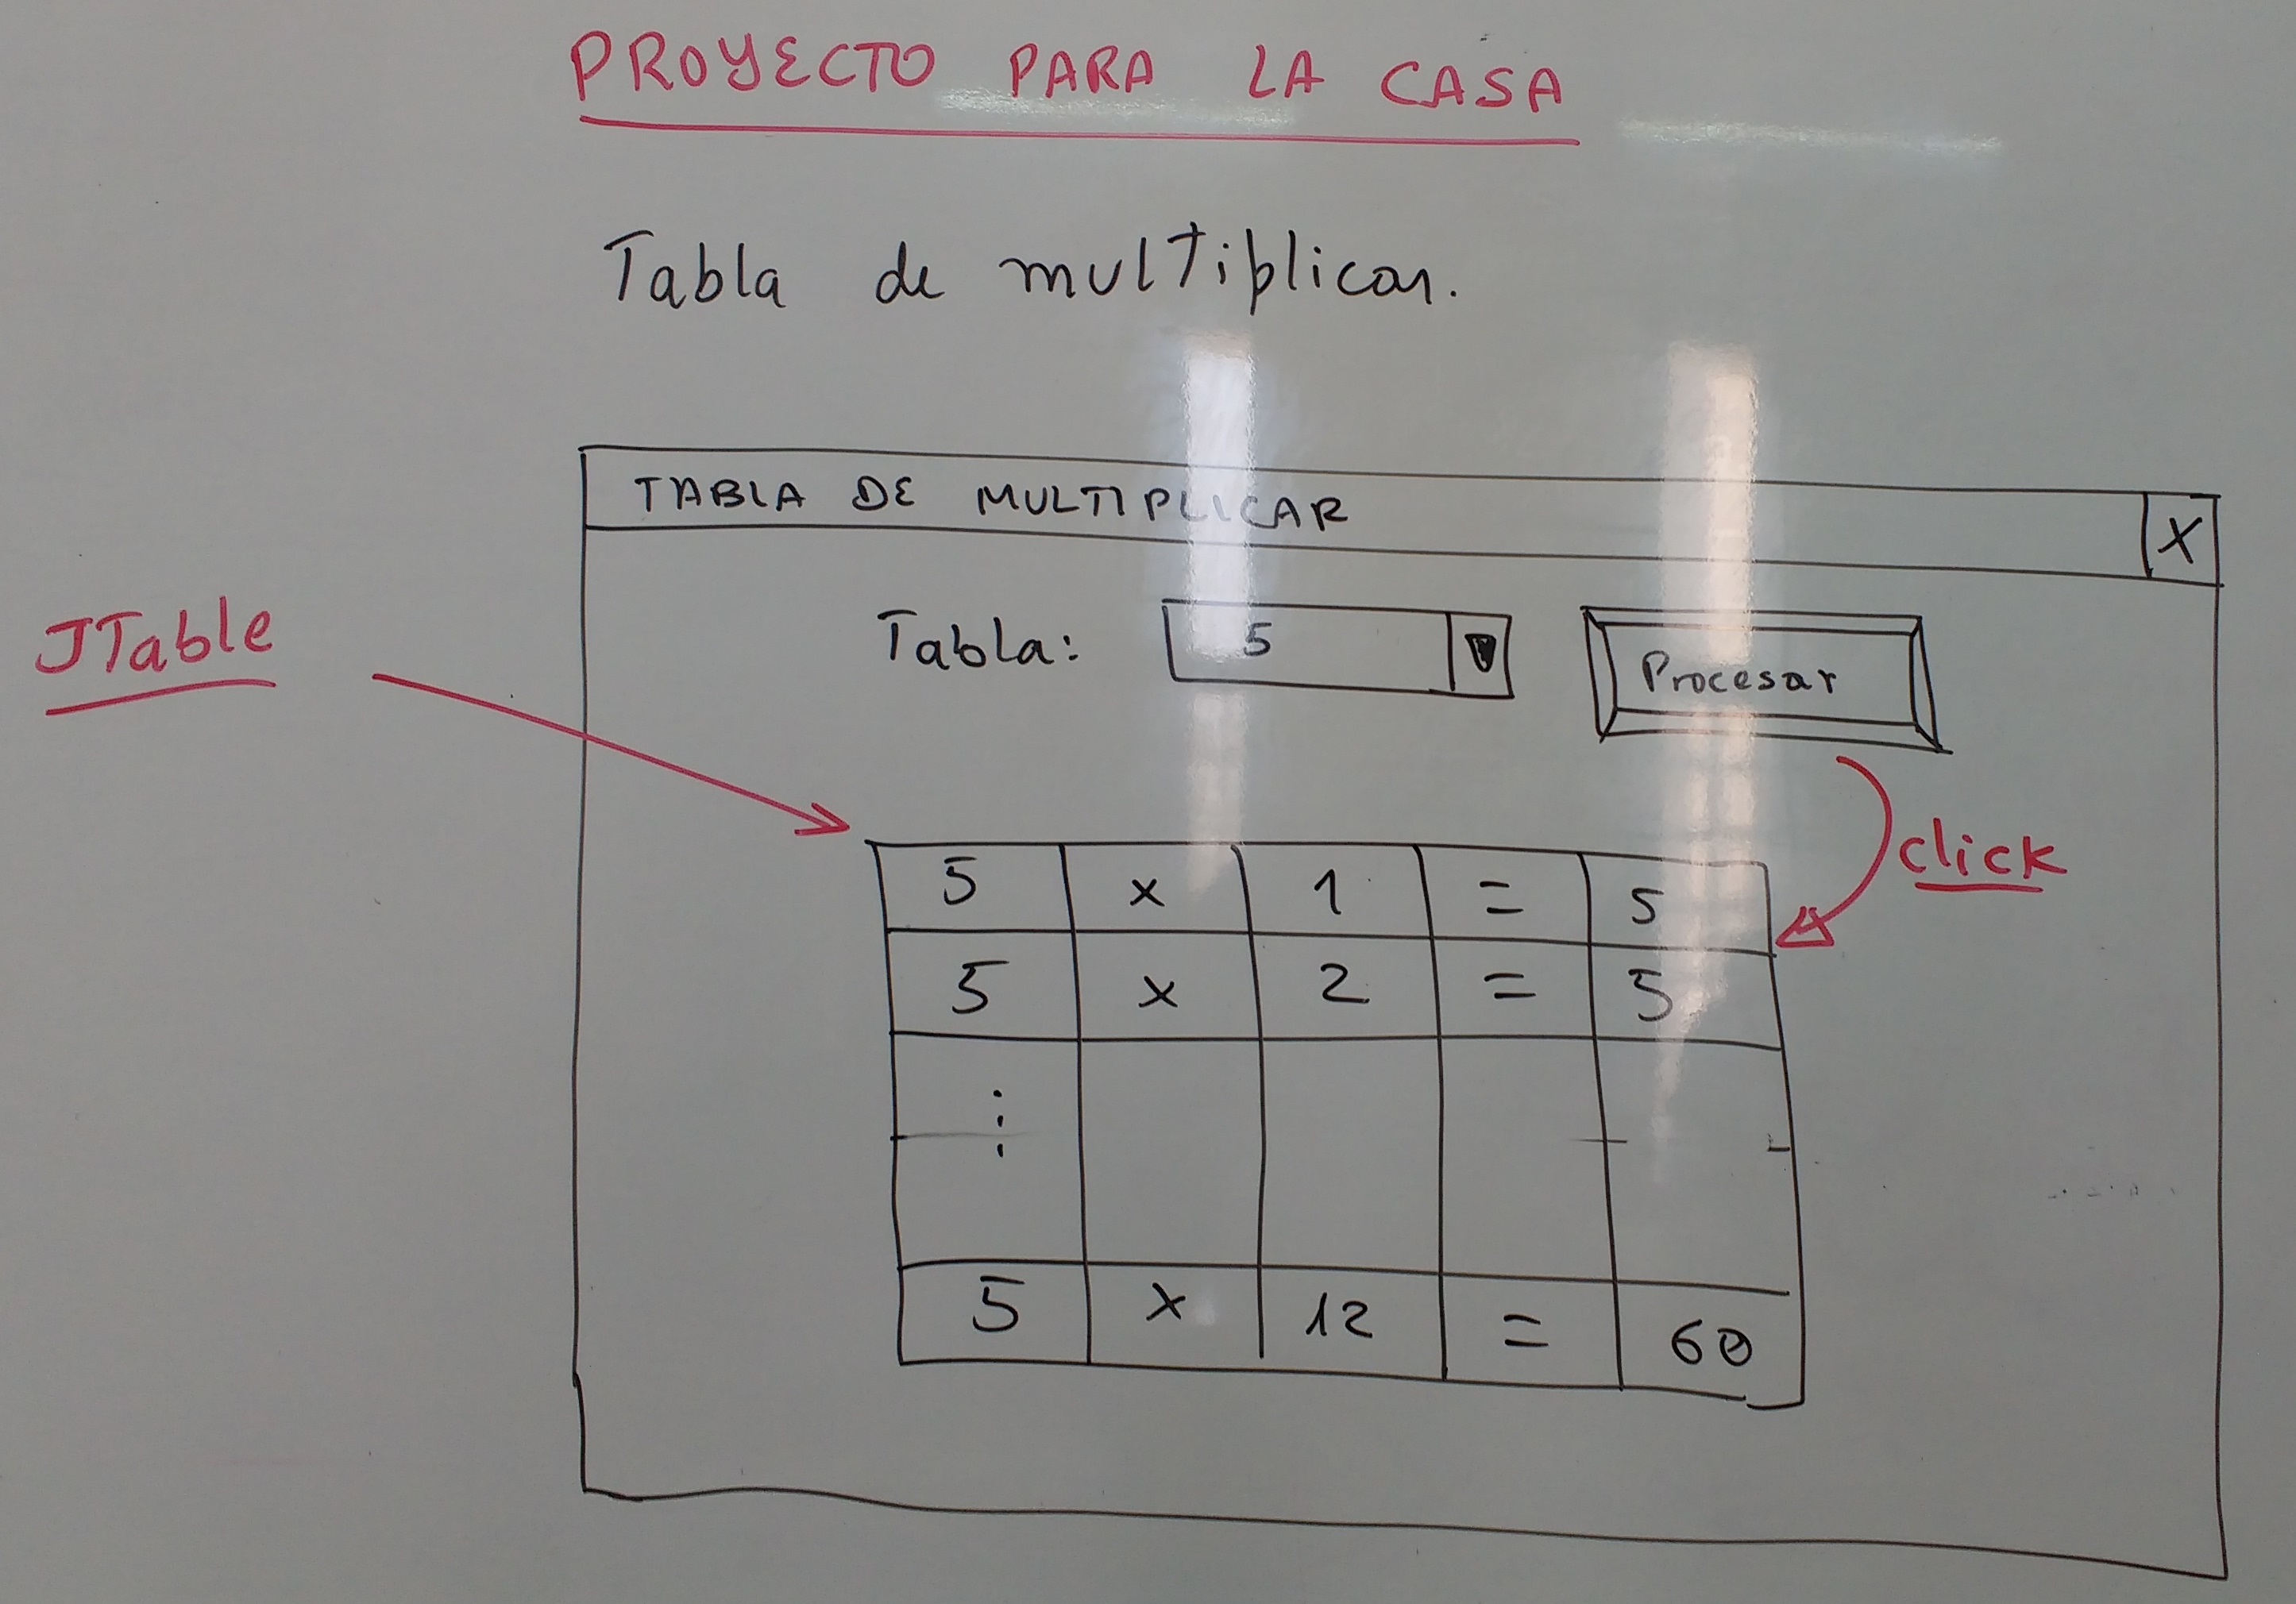 PROYECTO PARA LA CASA
Tabla de multiplicar.
TABLA DE MULTIPLICAR X
JTable
Tabla: 5 Procesar
click
5 x 1 = 5
5 x 2 = 5
⋮
5 x 12 = 60